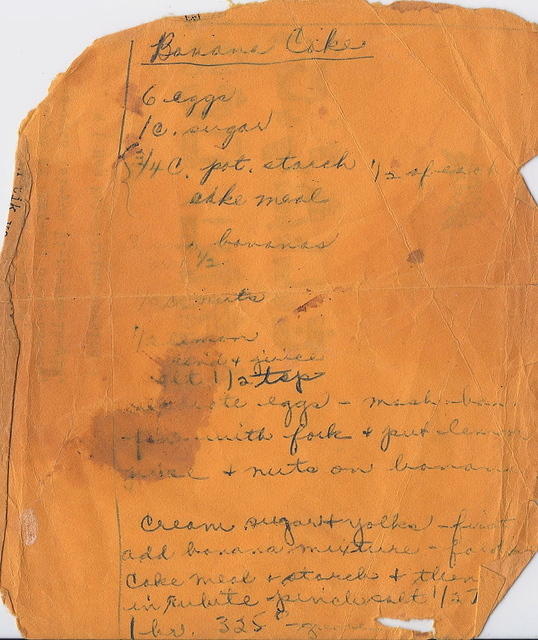 Banana Cake
6 eggs
1 c. sugar
3/4 c. pot. starch 1/2 of each
cake meal
bananas
1/2
nuts
1/2 lemon
rind + juice
salt 1/2 tsp
eggs - mash ban
with fork + put lemon
juice + nuts on banana
Cream sugar + yolks - first
add banana mixture - fold in
cake meal + starch + then
in white pinch salt 1/2 T
1 hr. 325°